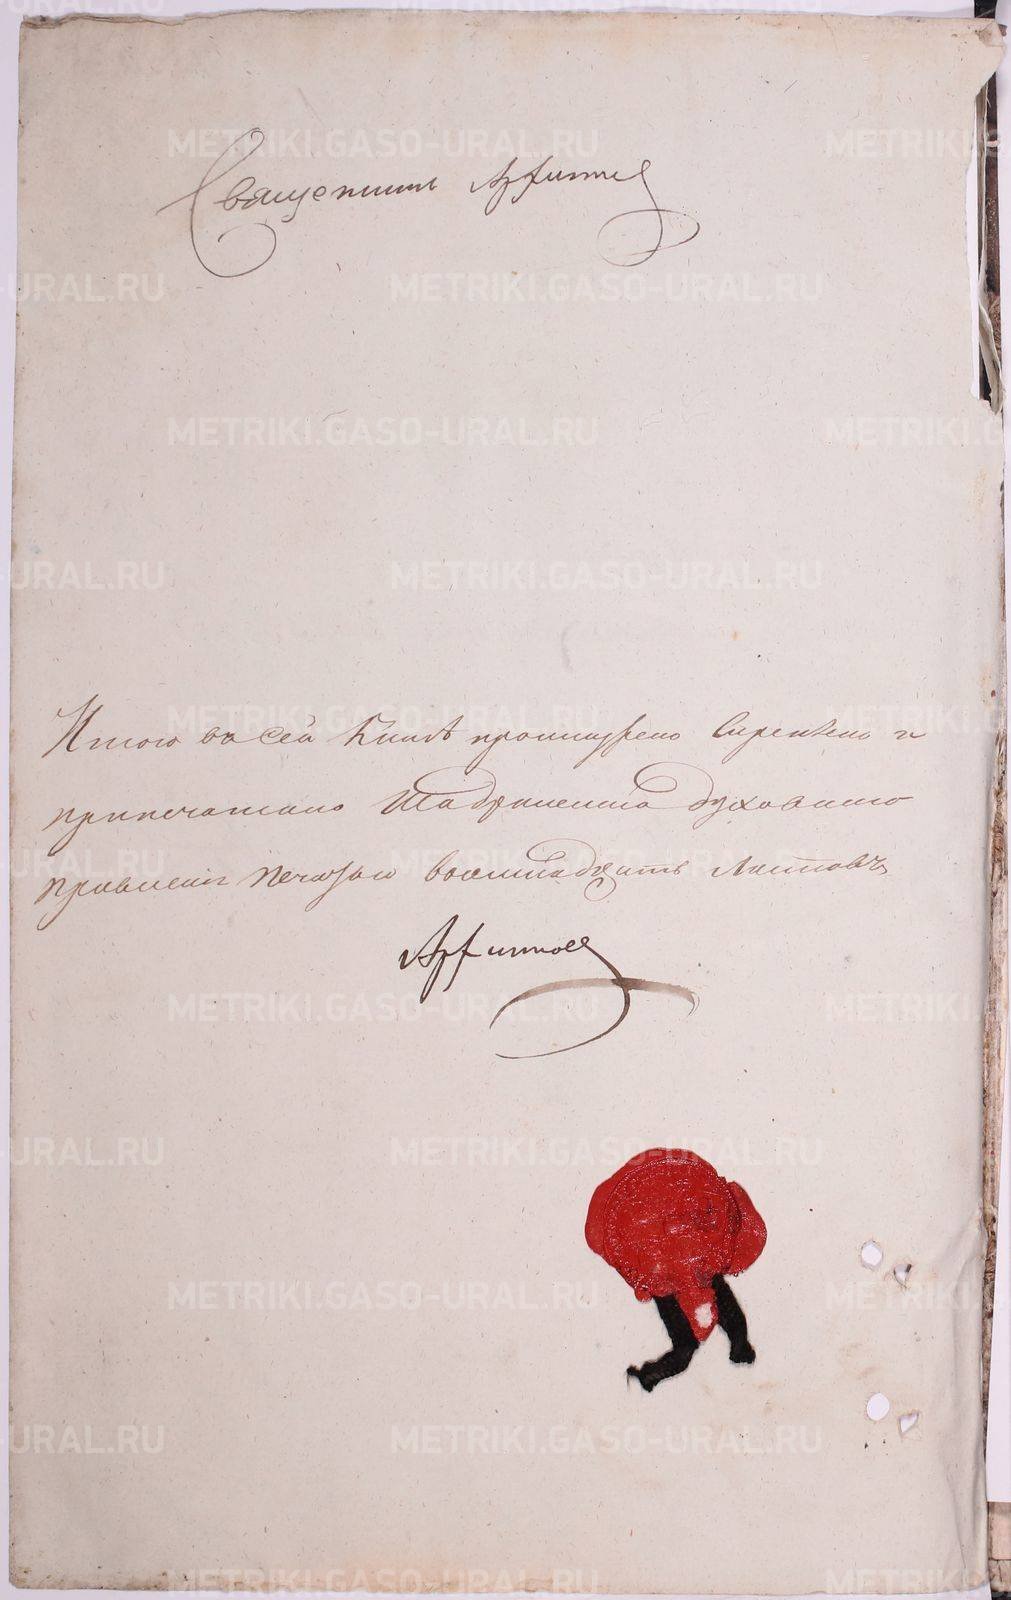 Священникъ
Итого въ сей Книгѣ прошнурено Скреплено и
припечатано Шадринскаго духовнаго
правленія печатью восемнадцать Листовъ
METRIKI.GASO-URAL.RU